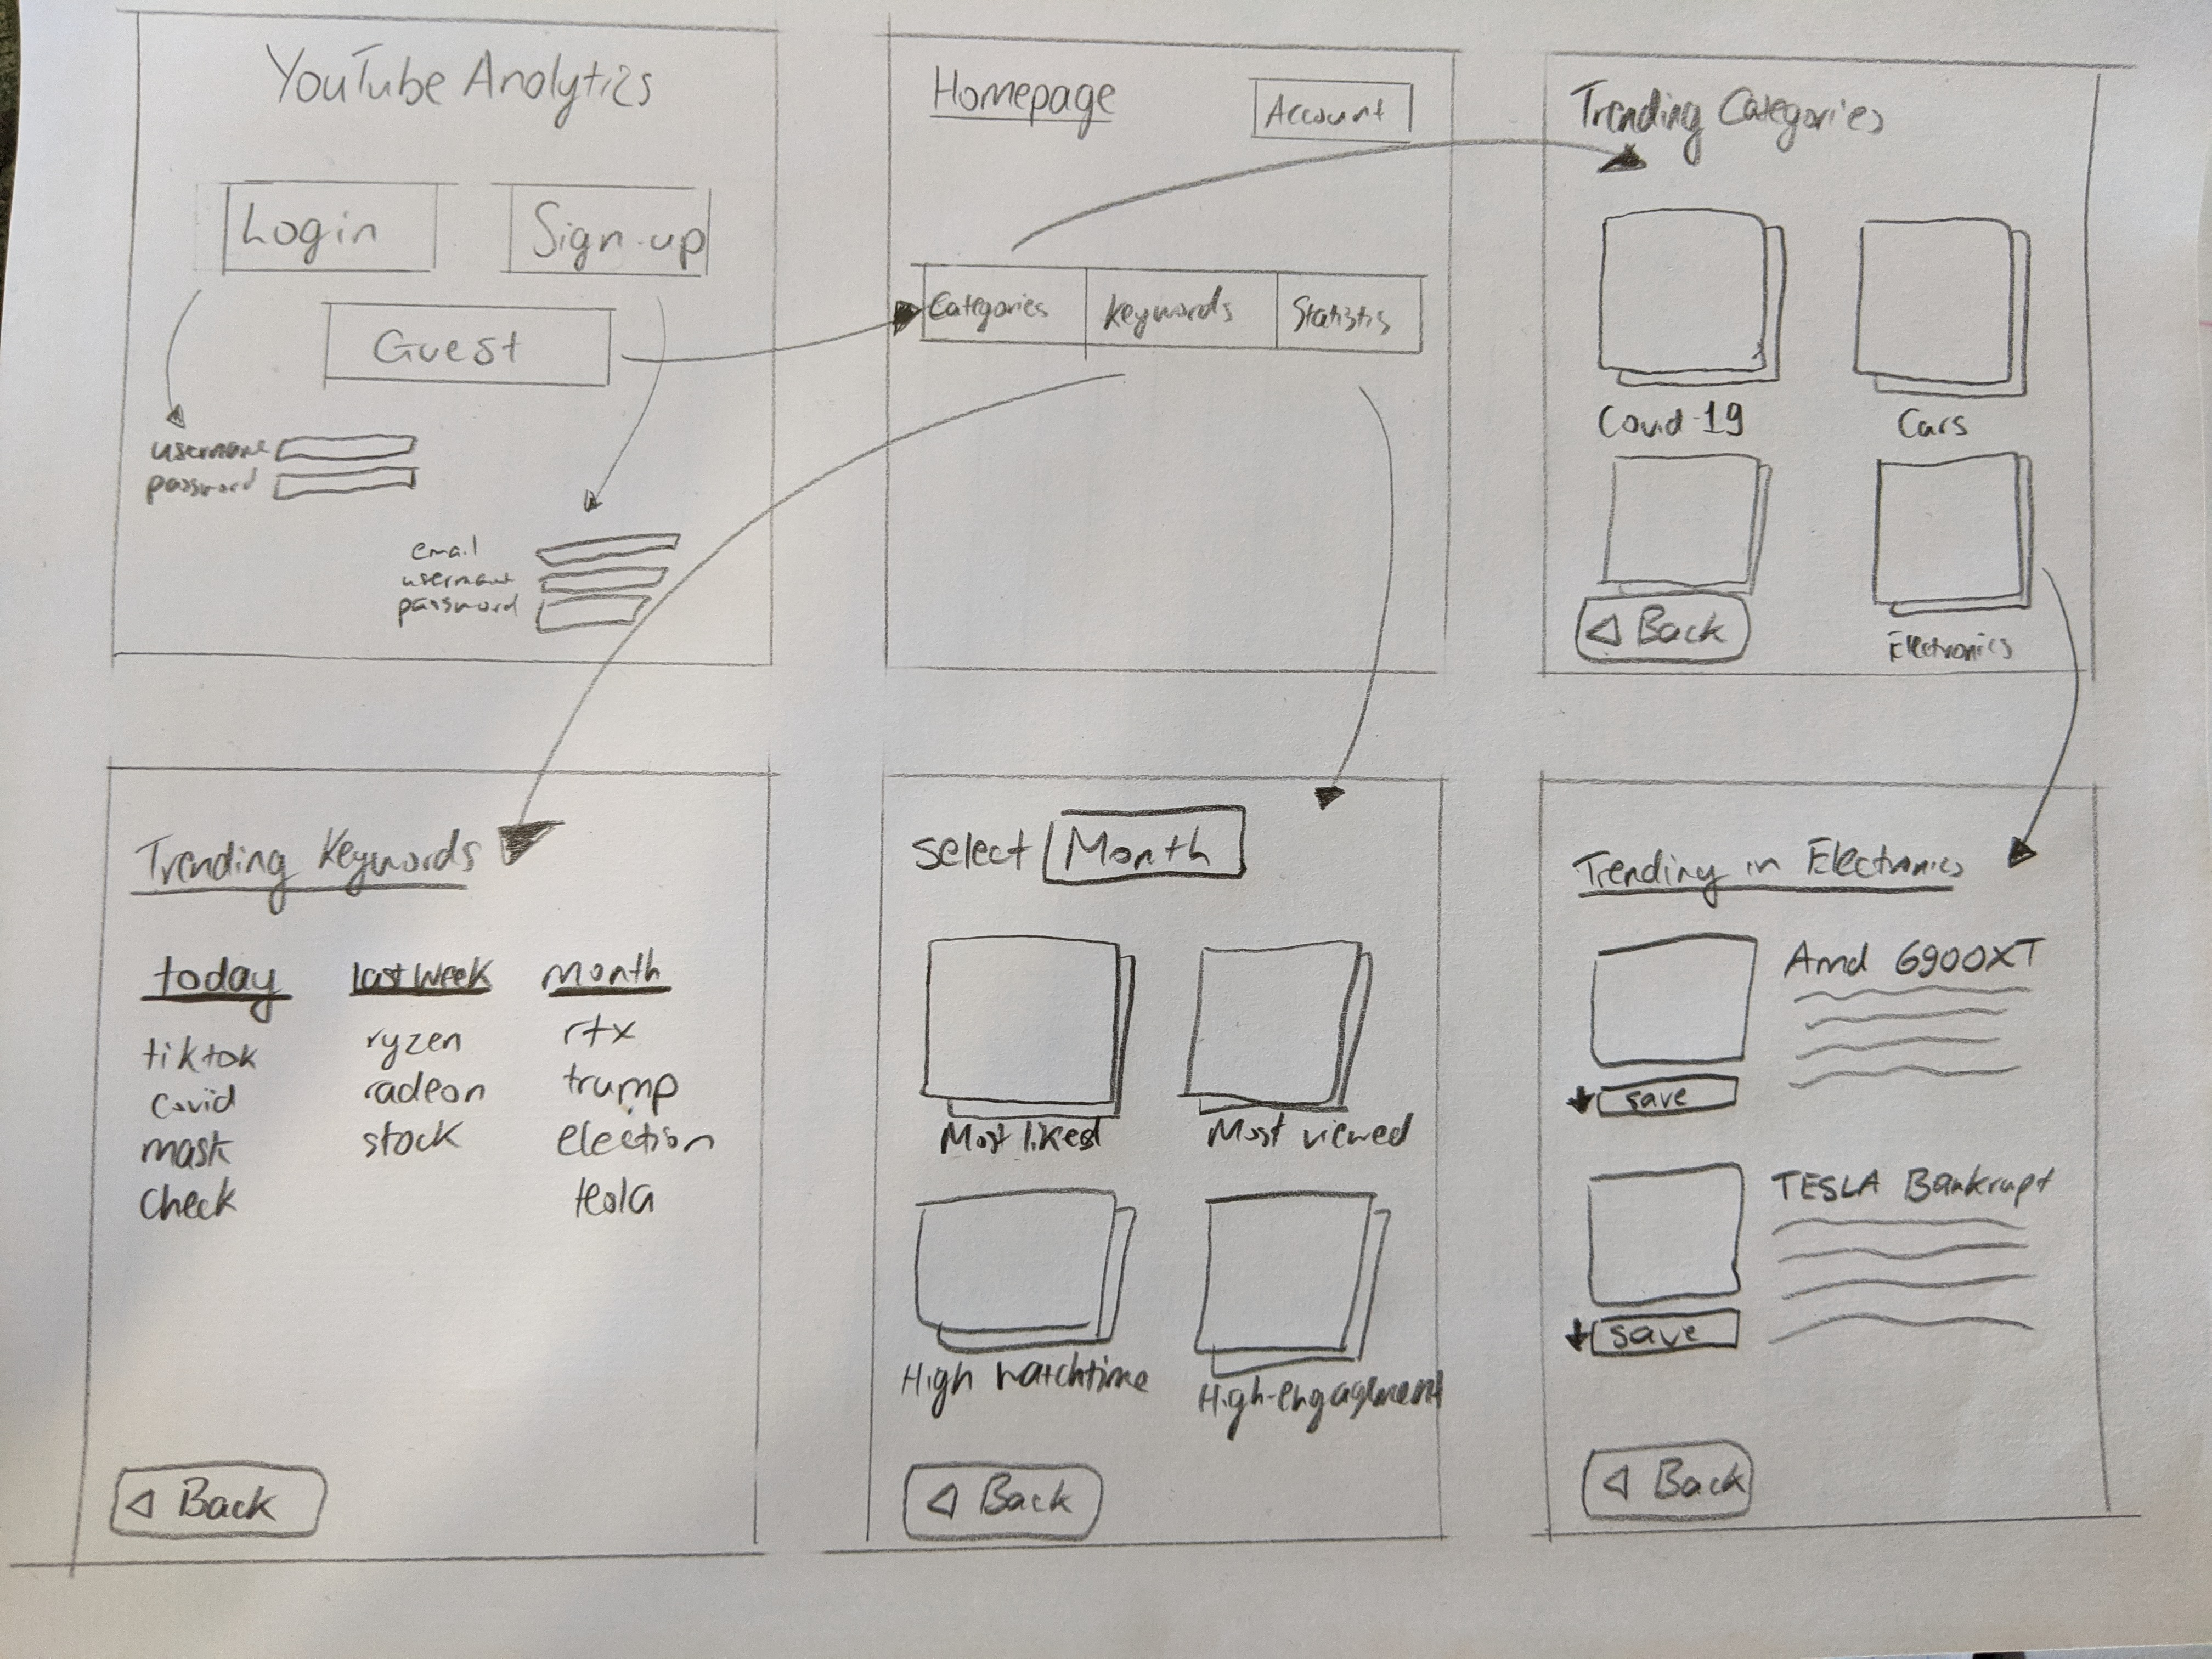 YouTube Analytics
Login
Sign-up
Guest
username
password
email
username
password
Homepage
Account
Categories
Keywords
Statistis
Trending Categories
Covid-19
Cars
Back
Electronics
Trending Keywords
today
last week
month
tiktok
ryzen
rtx
covid
radeon
trump
mask
stock
election
check
tesla
Back
select Month
Most liked
Most viewed
High watchtime
High-engagement
Back
Trending in Electronics
Amd 6900XT
save
TESLA Bankrupt
save
Back